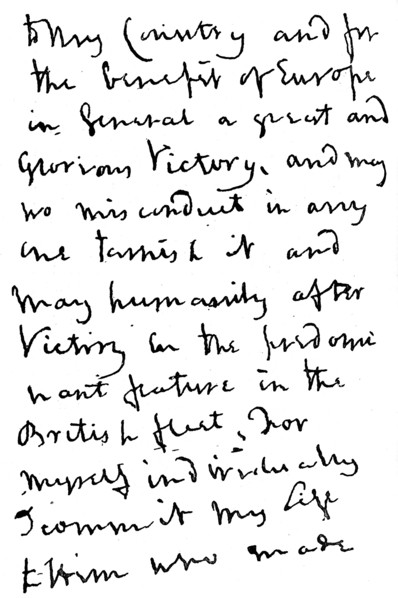 to my Country and for
the benefit of Europe
in General a great and
Glorious Victory, and may
no misconduct in any
one tarnish it and
may humanity after
Victory be the predomi
nant feature in the
British fleet, For
myself individually
I commit my Life
to Him who made